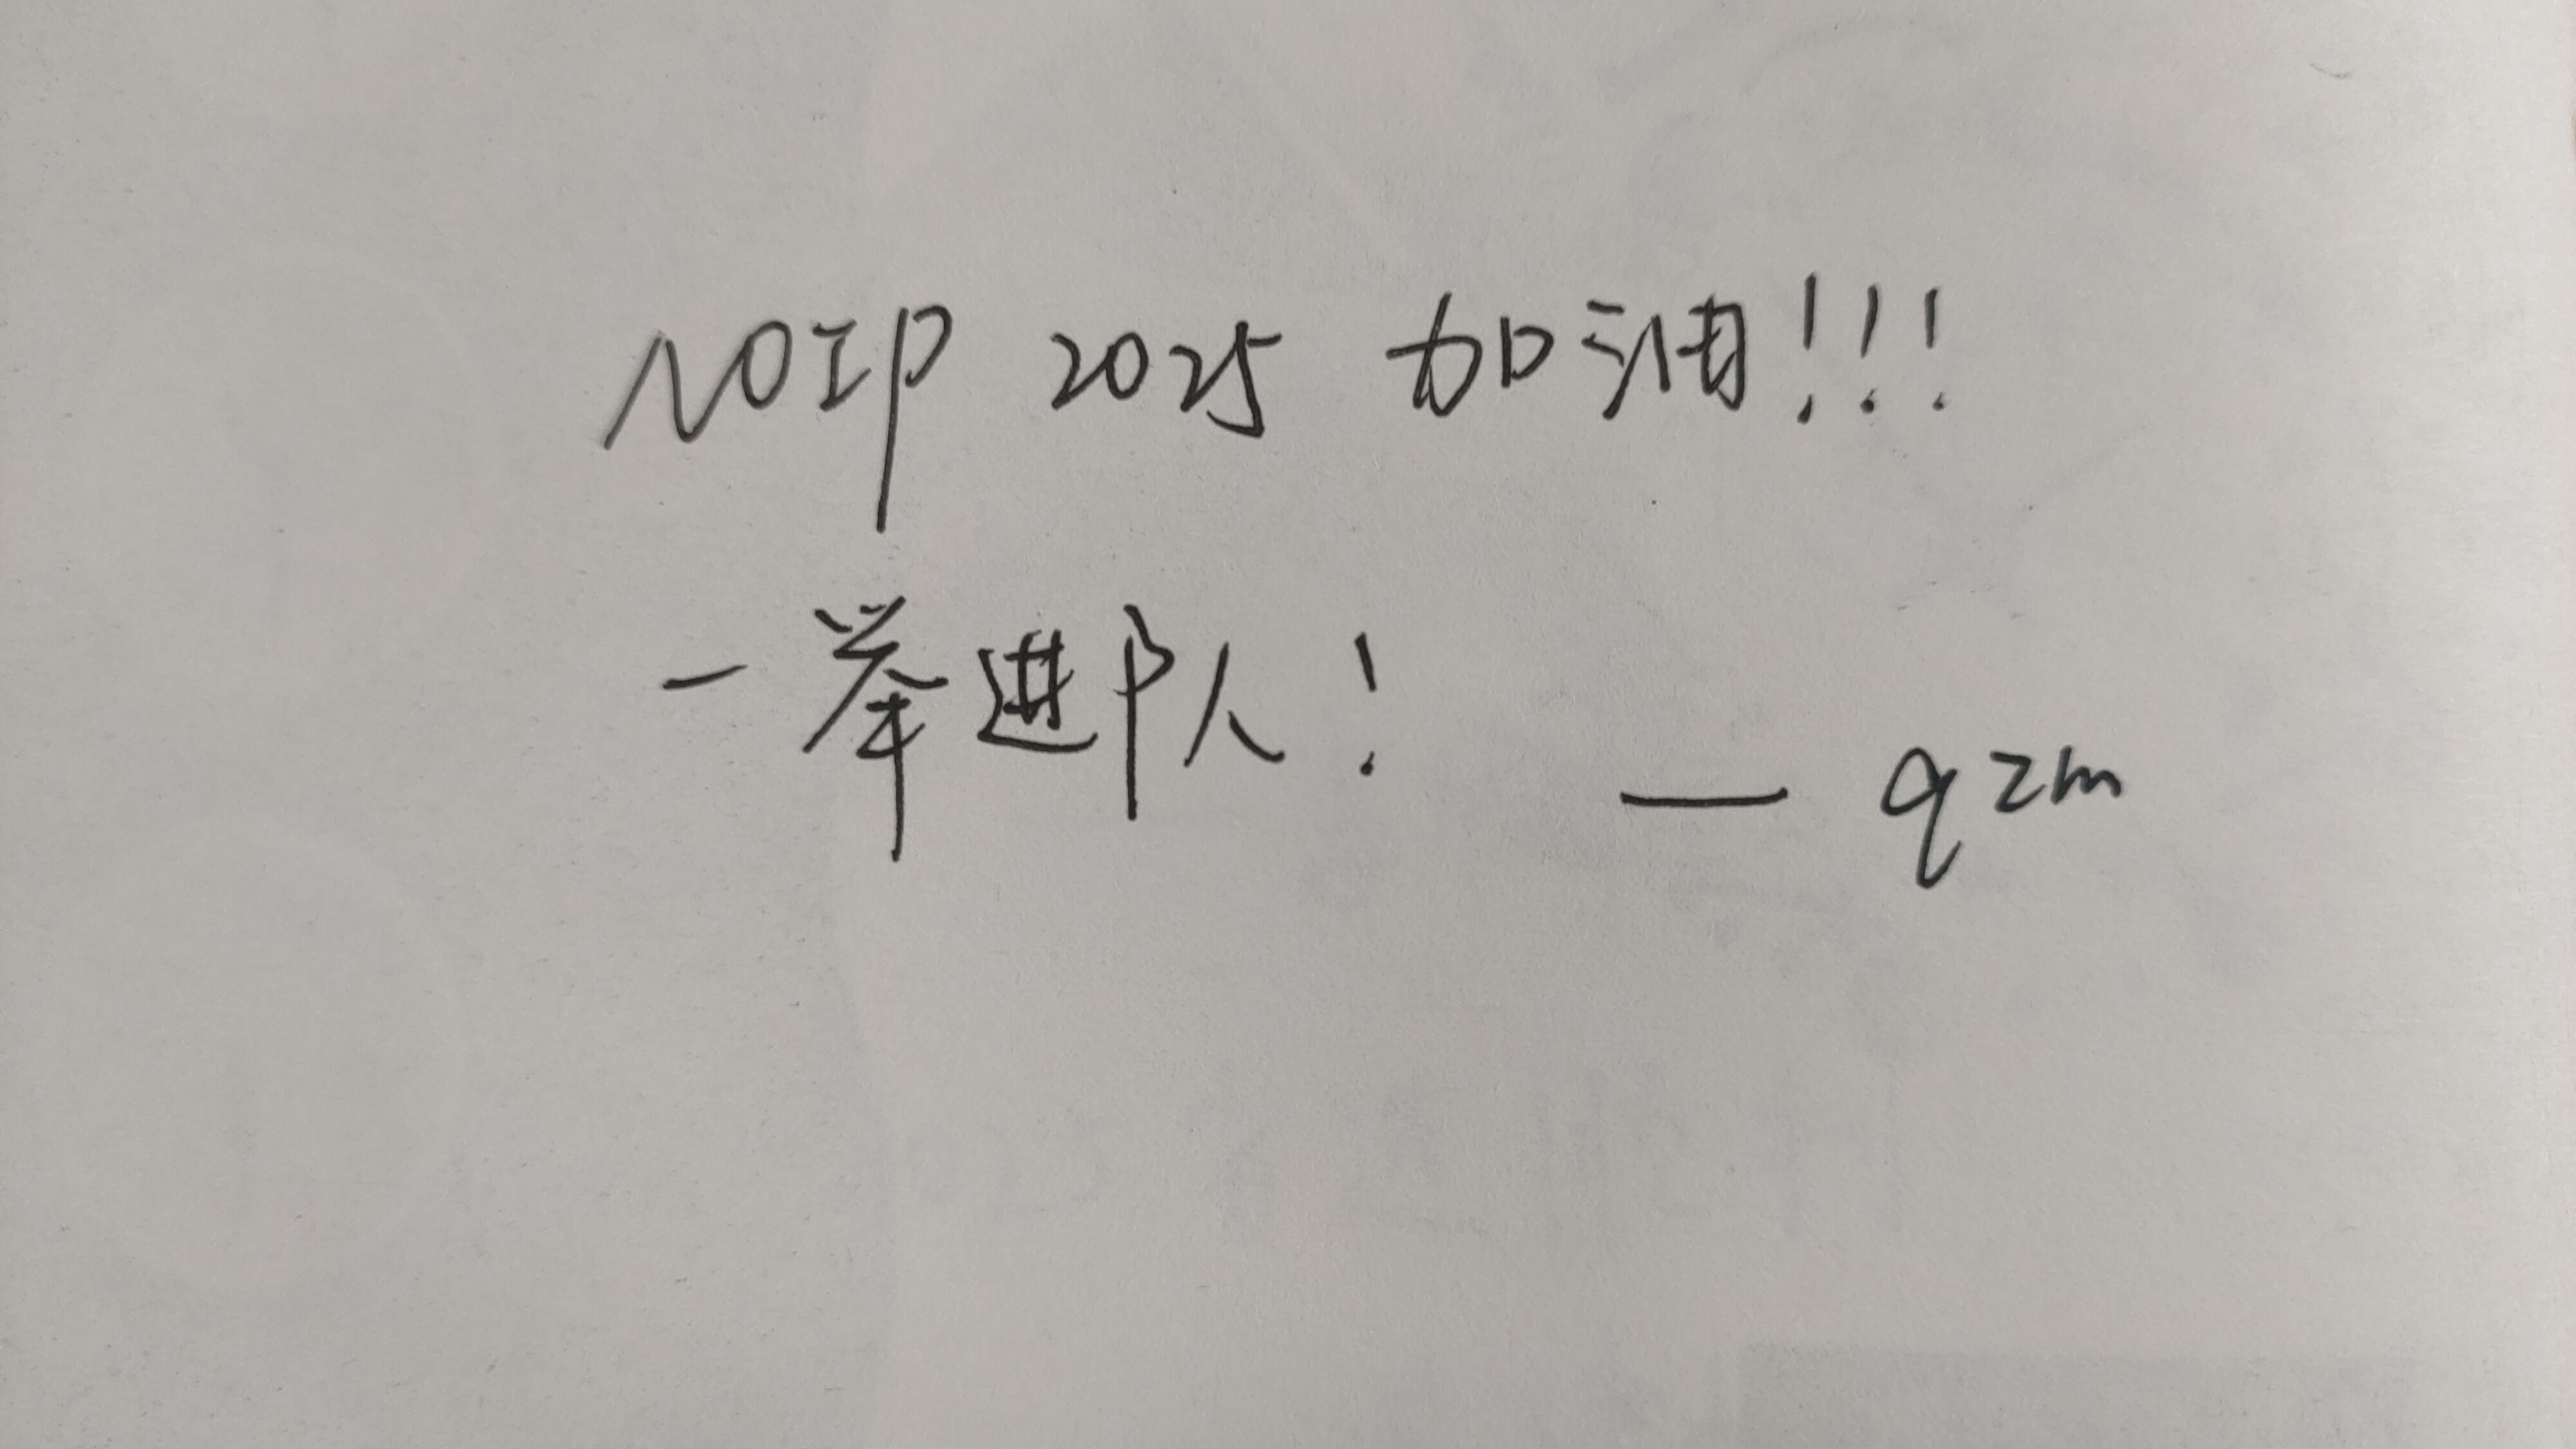 NOIP 2025 加油!!!
一举进队!
— qzm